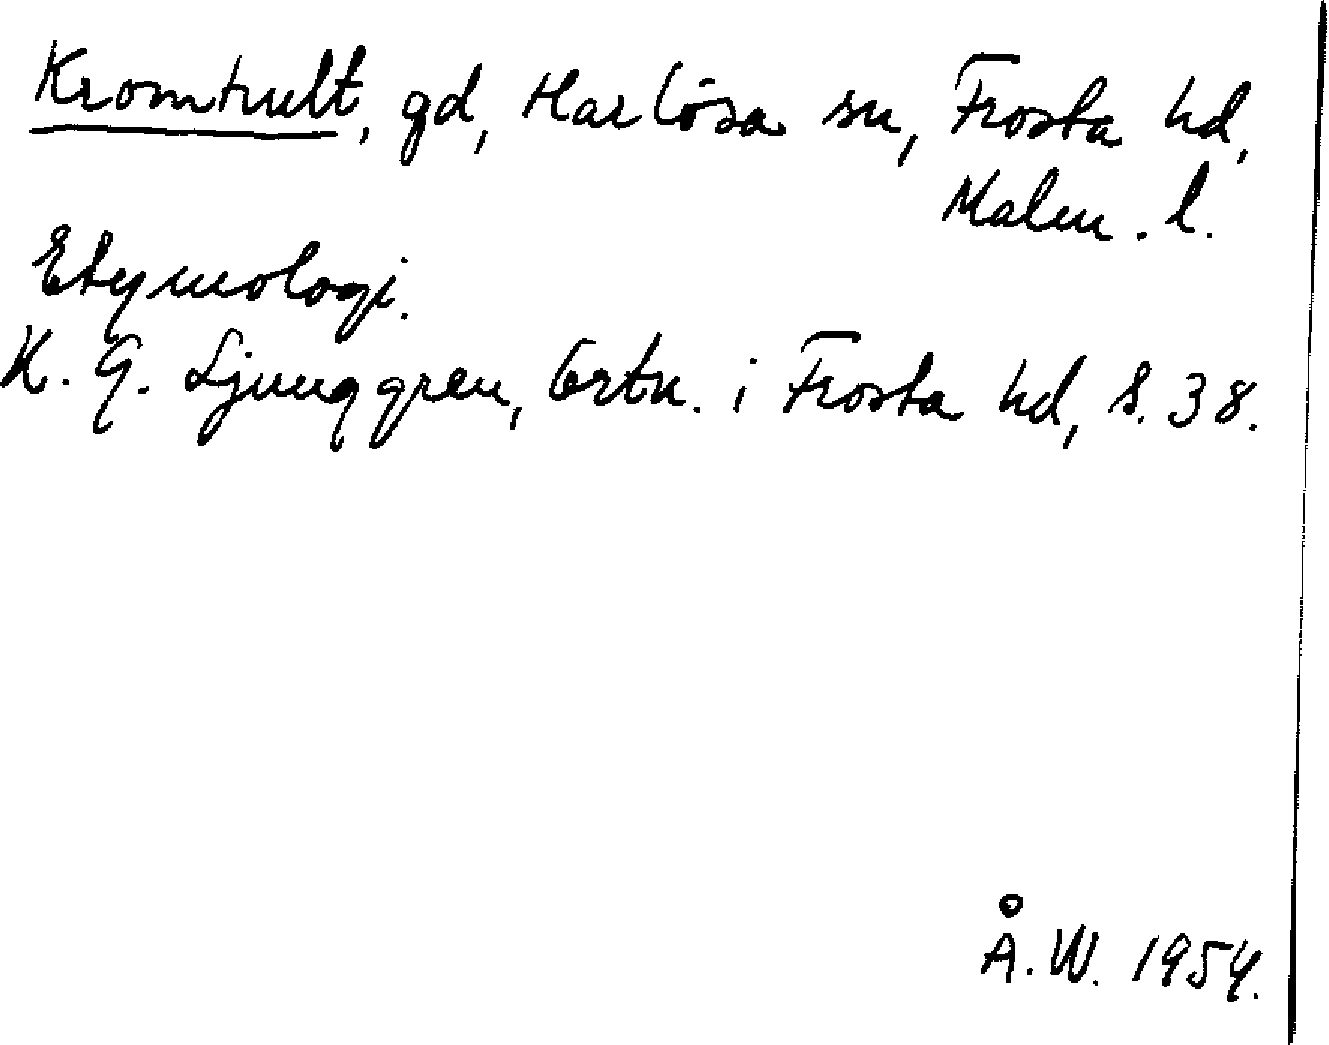 Kromhult, gd, Harlösa sn, Frosta hd,
Malm. l.
Etymologi.
K. G. Ljunggren, Ortn. i Frosta hd, s. 38.
Å. W. 1954.